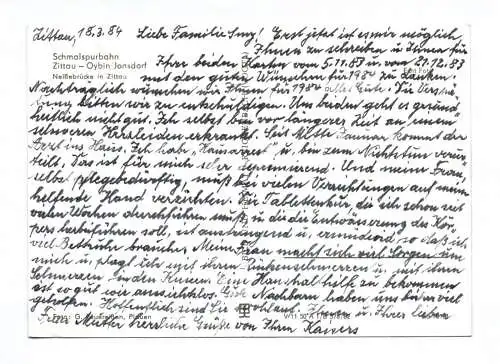 Zittau, 18.3.84 Liebe Familie Jung! Erst jetzt ist es mir möglich,
Schmalspurbahn
Zittau – Oybin/Jonsdorf
Neißebrücke in Zittau
Ihnen zu schreiben u. Ihnen für
Ihre beiden Karten vom 5.11.83 u. vom 21.12.83
mit den guten Wünschen für 1984 zu danken.
Nachträglich wünschen wir Ihnen für 1984 alles Gute. Die Verspä-
tung bitten wir zu entschuldigen. Uns beiden geht es gesund-
heitlich nicht gut. Ich selbst bin vor längerer Zeit an einem
schweren Herzleiden erkrankt. Seit Mitte Januar kommt der
Arzt ins Haus. Ich habe "Hausarrest" u. bin zum Nichtstun verur-
teilt. Das ist für mich sehr deprimierend. Und meine Frau,
selbst pflegebedürftig, muß bei vielen Verrichtungen auf meine
helfende Hand verzichten. Die Tablettenkur, die ich schon seit
vielen Wochen durchführen muß, u. die die Entwässerung des Kör-
pers herbeiführen soll, ist anstrengend u. ermüdend, so daß ich
viel Bettruhe brauche. Meine Frau macht sich viel Sorgen um
mich u. plagt sich mit ihren Rückenschmerzen u. mit ihren
Schmerzen in den Knien. Eine Haushalthilfe zu bekommen
ist so gut wie aussichtslos. Gute Nachbarn haben uns bisher viel
geholfen. Hoffentlich sind Sie wohlauf. Ihnen u. Ihrer lieben
Foto: G. Plauen
Frau Mutter herzliche Grüße von Ihren Kaisers